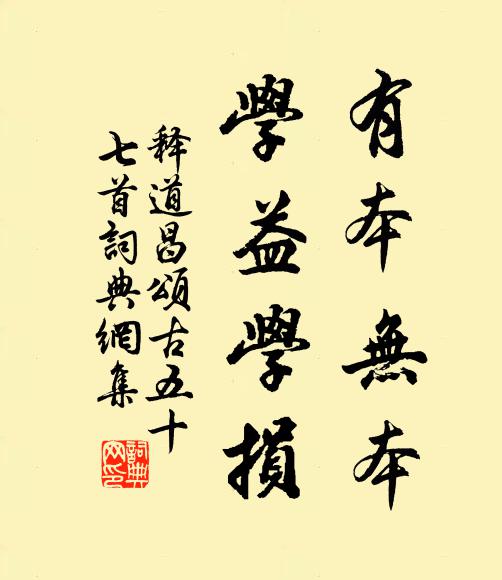 有本無本
學益學損
释道昌頌古五十
七首詞典網集
詞典網印